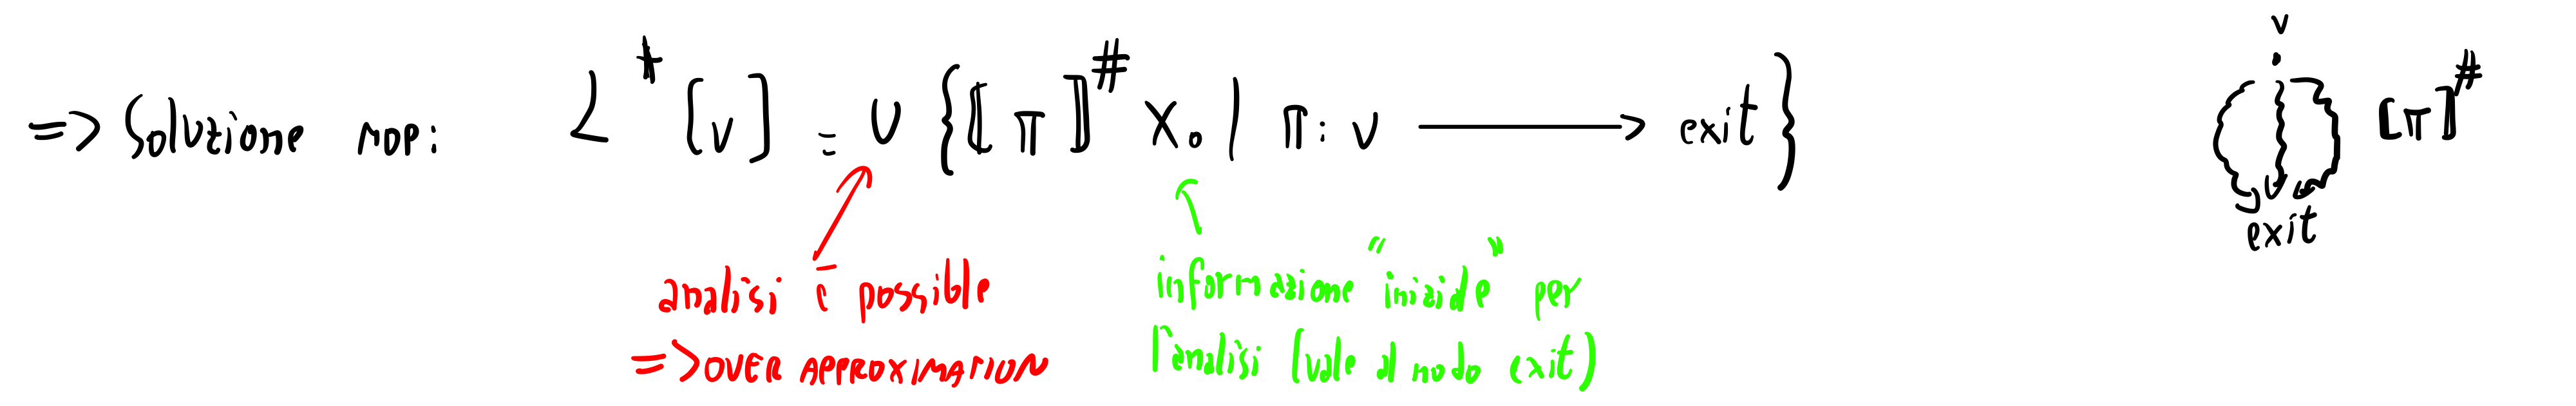 => Soluzione MOP: L* [v] = ∪ {⟦π⟧# X₀ | π: v → exit}
v
⟦π⟧#
exit
analisi è possible
=> OVER APPROXIMATION
informazione "iniziale" per
l'analisi (vale al nodo exit)